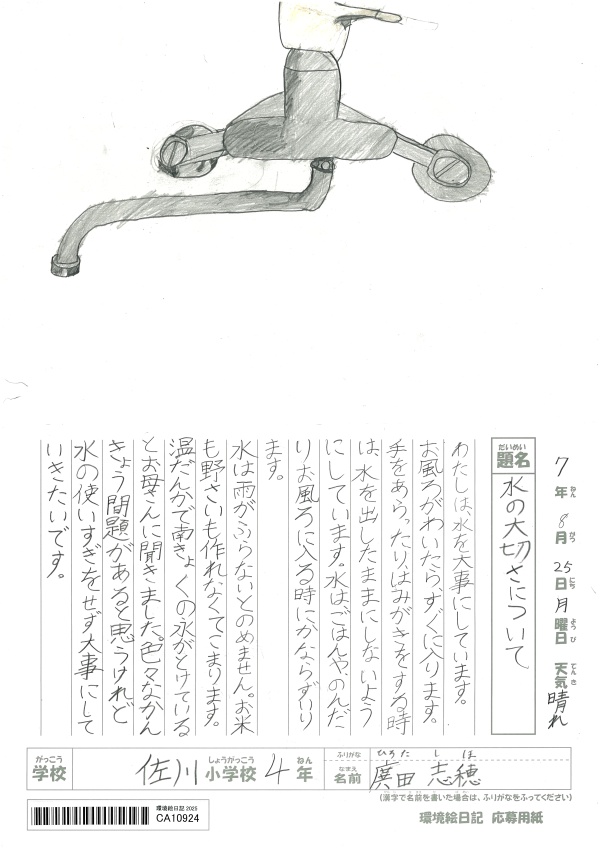 7年ねん 8月がつ 25日にち 月曜日ようび 天気てんき 晴れ
題名だいめい 水の大切さについて
わたしは、水を大事にしています。
お風ろがわいたらすぐに入ります。
手をあらったり、はみがきをする時
は、水を出したままにしないよう
にしています。水はごはんや、のんだ
りお風ろに入る時にかならずいり
ます。
水は雨がふらないとのめません。お米
も野さいも作れなくてこまります。
温だんかで南きょくの氷がとけている
とお母さんに聞きました。色々なかん
きょう問題があると思うけれど
水の使いすぎをせず大事にして
いきたいです。
学校がっこう 佐川小学校しょうがっこう 4年ねん
ふりがな ひろた しほ
名前なまえ 廣田 志穂
(漢字で名前を書いた場合は、ふりがなをふってください)
環境絵日記 2025
CA10924
環境絵日記 応募用紙